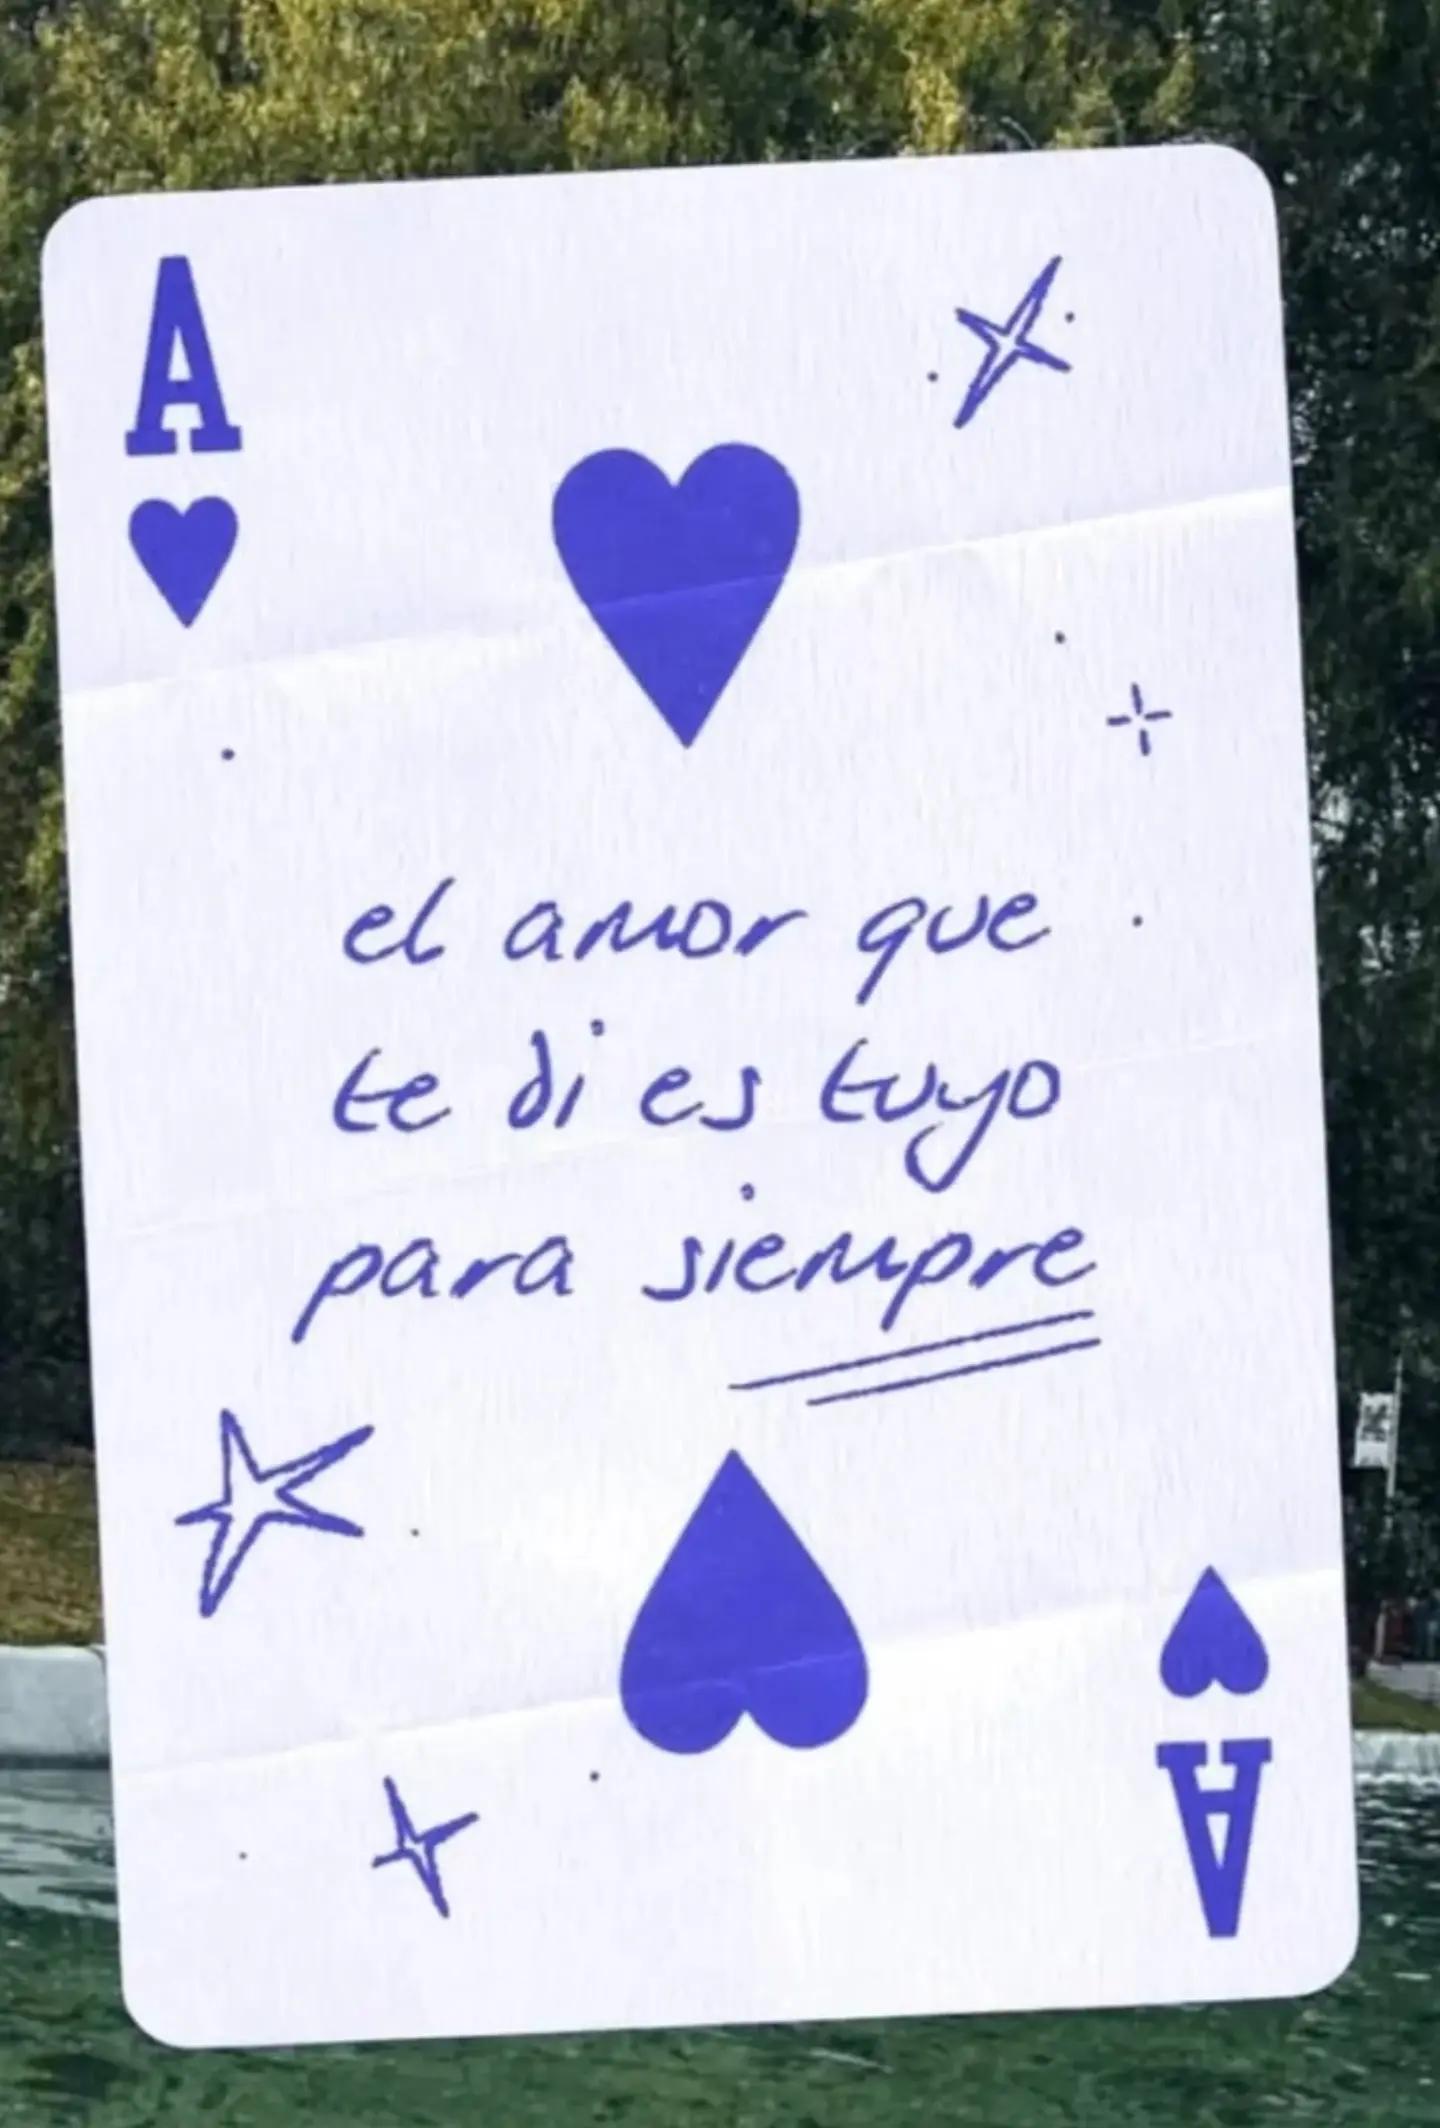 A
el amor que
te di es tuyo
para siempre
A